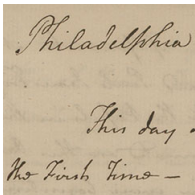 Philadelphia
This day
the First Time —